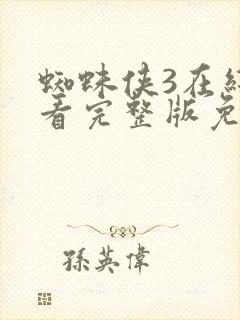 蜘蛛侠3在线
看完整版免
孫英偉